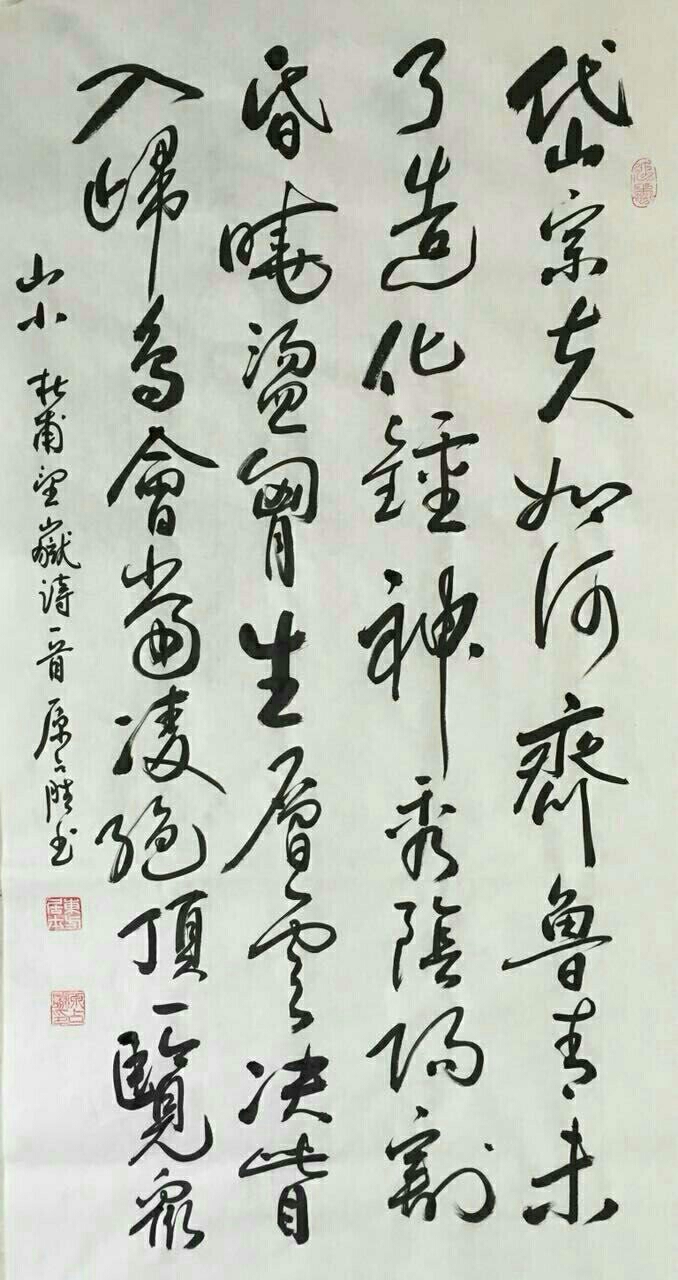 岱宗夫如何齊魯青未
了造化鍾神秀陰陽割
昏曉盪胷生層雲決眥
入歸鳥會當凌絕頂一覽衆
山小 杜甫望嶽詩一首 原占勝書